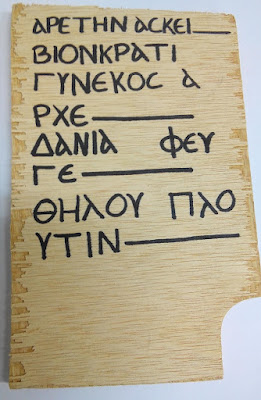 ΑΡΕΤΗΝ ΑϹΚΕΙ
ΒΙΟΝΚΡΑΤΙ
ΓΥΝΕΚΟϹ Α
ΡΧΕ
ΔΑΝΙΑ ΦΕΥ
ΓΕ
ΘΗΛΟΥ ΠΛΟ
ΥΤΙΝ